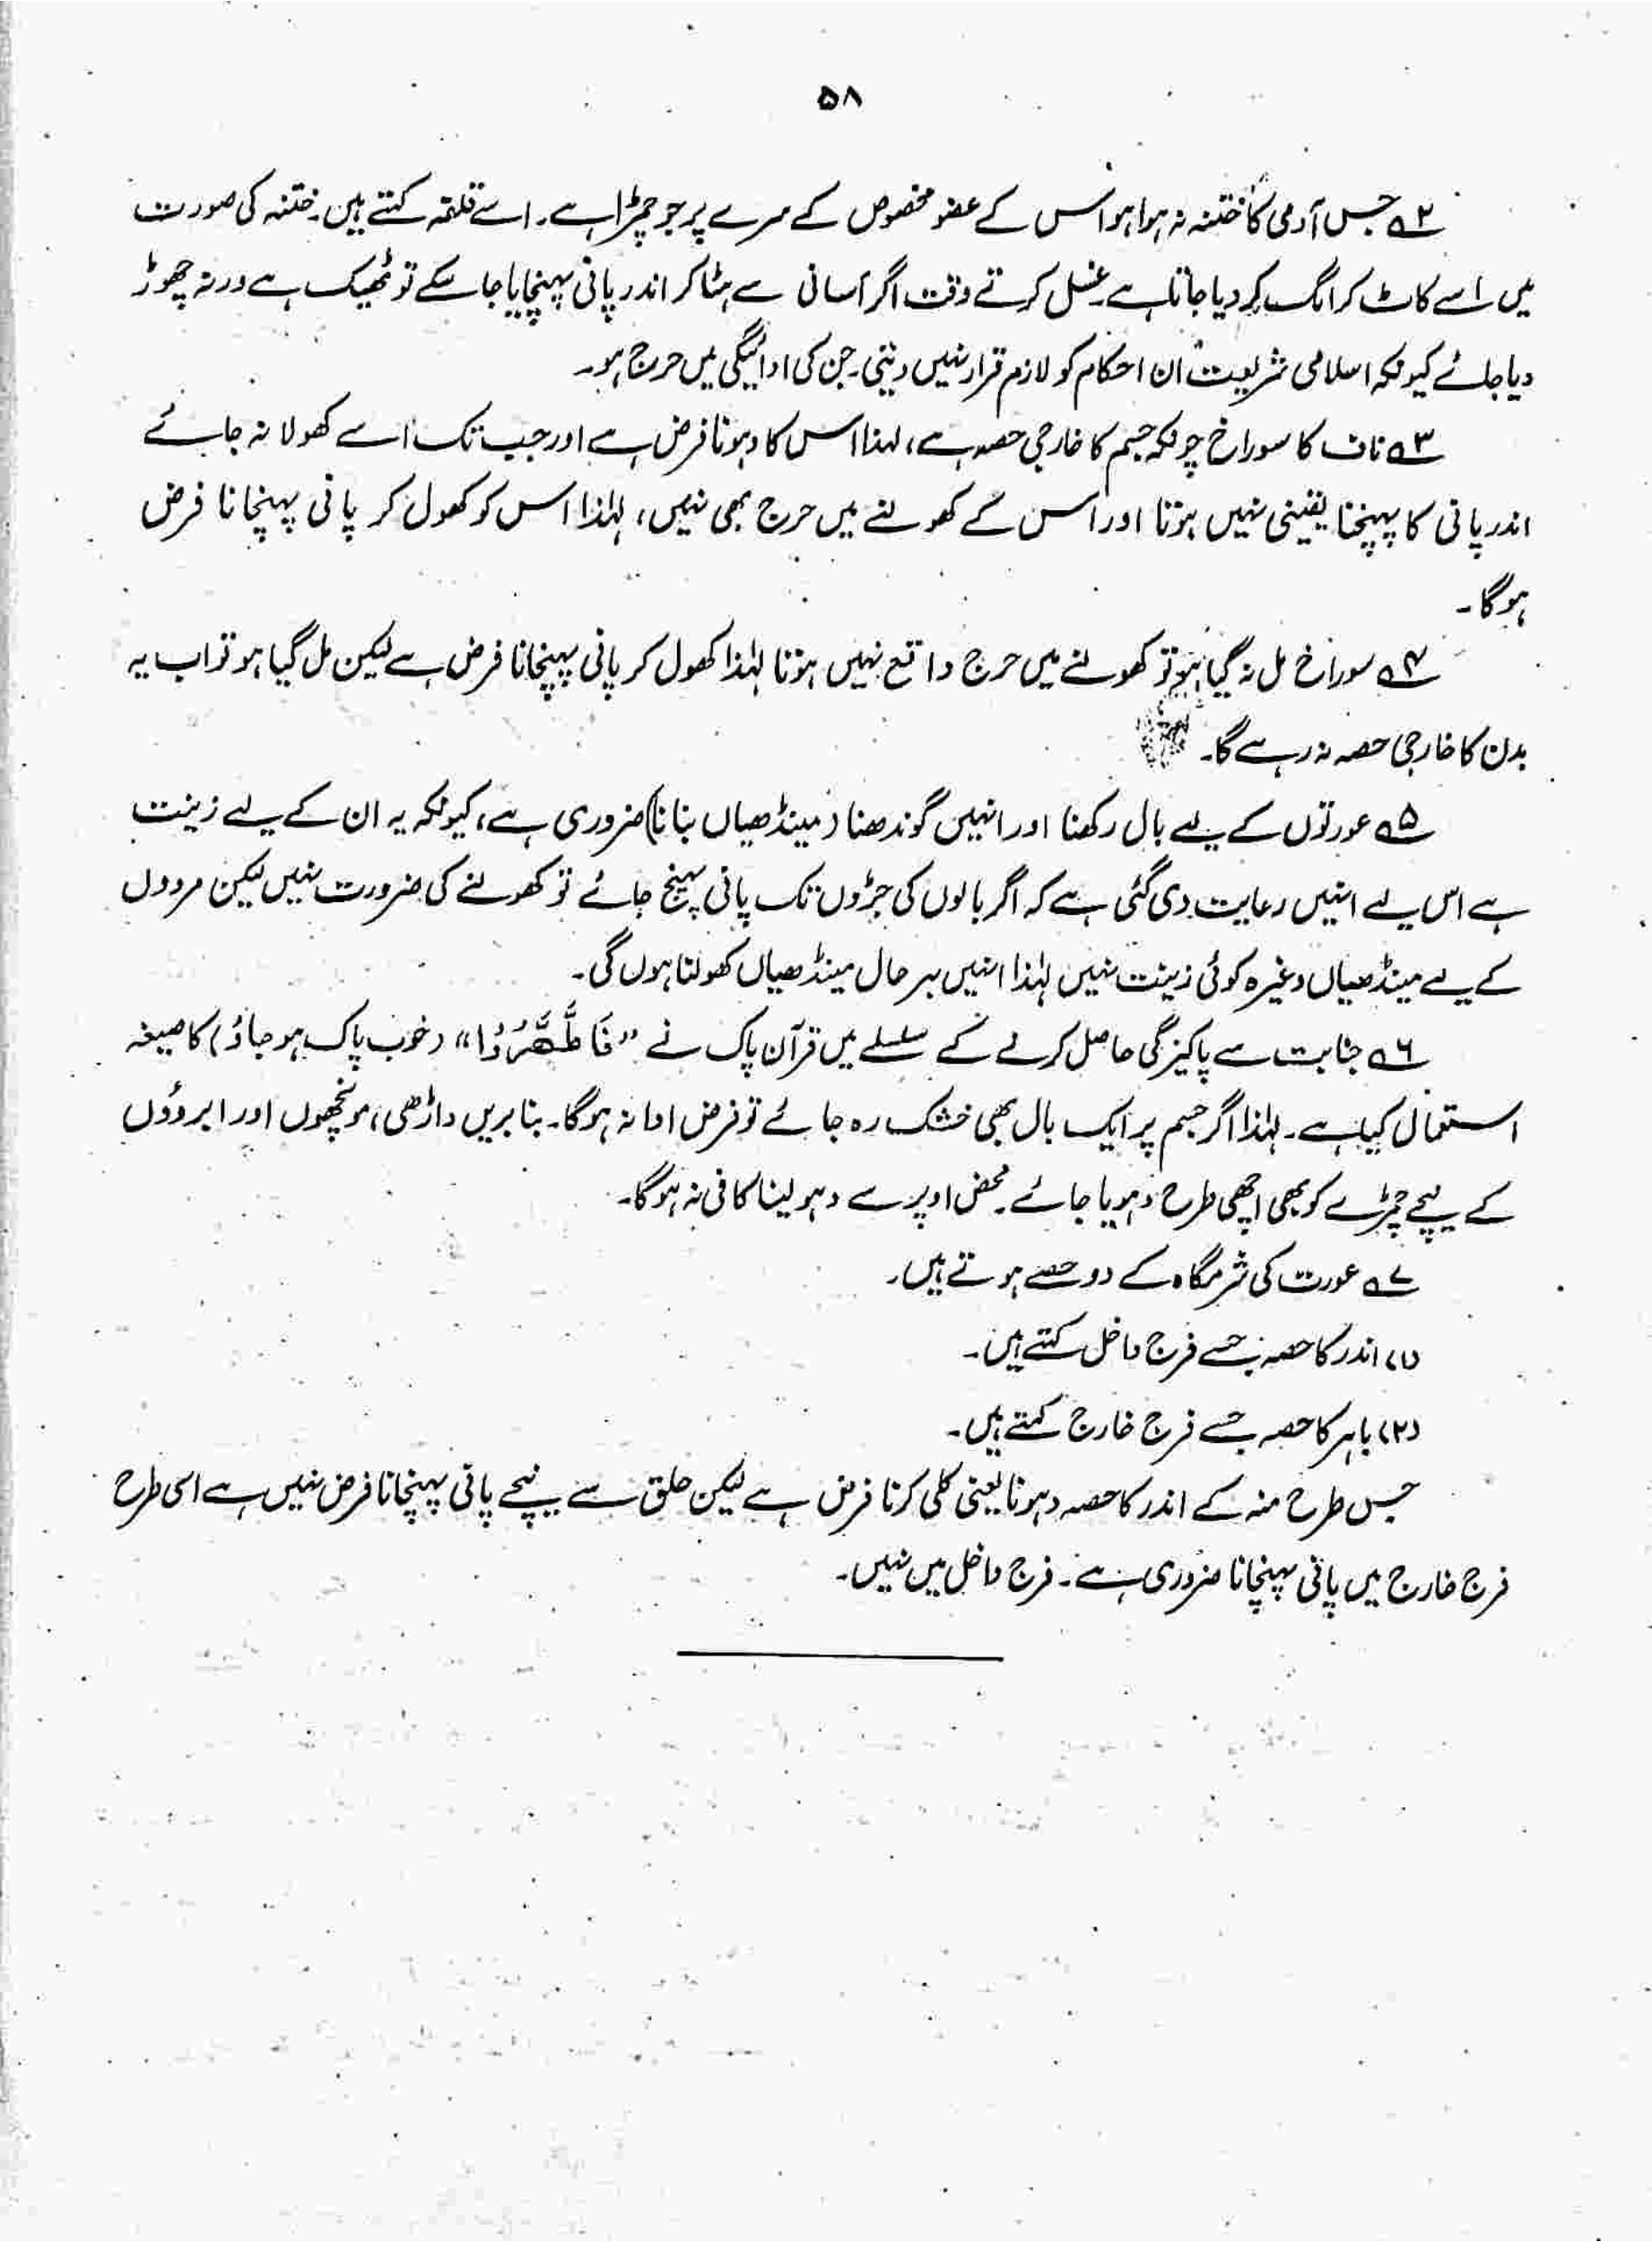 ۵۸
۲؎ جس آدمی کا ختنہ نہ ہوا ہو اس کے عضو مخصوص کے سرے پر جو چمڑا ہے۔ اسے قلفہ کہتے ہیں۔ ختنہ کی صورت
میں اسے کاٹ کر الگ کر دیا جاتا ہے۔ غسل کرتے وقت اگر آسانی سے ہٹا کر اندر پانی پہنچایا جا سکے تو ٹھیک ہے ورنہ چھوڑ
دیا جائے کیونکہ اسلامی شریعت ان احکام کو لازم قرار نہیں دیتی۔ جن کی ادائیگی میں حرج ہو۔
۳؎ ناف کا سوراخ چونکہ جسم کا خارجی حصہ ہے، لہذا اس کا دہونا فرض ہے اور جب تک اسے کھولا نہ جائے
اندر پانی کا پہنچنا یقینی نہیں ہوتا اور اس کے کھولنے میں حرج بھی نہیں، لہٰذا اس کو کھول کر پانی پہنچانا فرض
ہوگا۔
۴؎ سوراخ مل نہ گیا ہو تو کھولنے میں حرج واقع نہیں ہوتا لہٰذا کھول کر پانی پہنچانا فرض ہے لیکن مل گیا ہو تو اب یہ
بدن کا خارجی حصہ نہ رہے گا۔
۵؎ عورتوں کے لیے بال رکھنا اور انہیں گوندھنا (مینڈھیاں بنانا) ضروری ہے، کیونکہ یہ ان کے لیے زینت
ہے اس لیے انہیں رعایت دی گئی ہے کہ اگر بالوں کی جڑوں تک پانی پہنچ جائے تو کھولنے کی ضرورت نہیں لیکن مردوں
کے لیے مینڈھیاں وغیرہ کوئی زینت نہیں لہٰذا انہیں بہر حال مینڈھیاں کھولنا ہوں گی۔
۶؎ جنابت سے پاکیزگی حاصل کرنے کے سلسلے میں قرآن پاک نے "فَاطَّهَّرُوْا" (خوب پاک ہو جاؤ) کا صیغہ
استعمال کیا ہے۔ لہٰذا اگر جسم پر ایک بال بھی خشک رہ جائے تو فرض ادا نہ ہوگا۔ بنا بریں داڑھی، مونچھوں اور ابروؤں
کے نیچے چمڑے کو بھی اچھی طرح دہویا جائے۔ محض اوپر سے دہو لینا کافی نہ ہوگا۔
۷؎ عورت کی شرمگاہ کے دو حصے ہوتے ہیں۔
(۱) اندر کا حصہ جسے فرج داخل کہتے ہیں۔
(۲) باہر کا حصہ جسے فرج خارج کہتے ہیں۔
جس طرح منہ کے اندر کا حصہ دہونا یعنی کلی کرنا فرض ہے لیکن حلق سے نیچے پانی پہنچانا فرض نہیں ہے اسی طرح
فرج خارج میں پانی پہنچانا ضروری ہے۔ فرج داخل میں نہیں۔